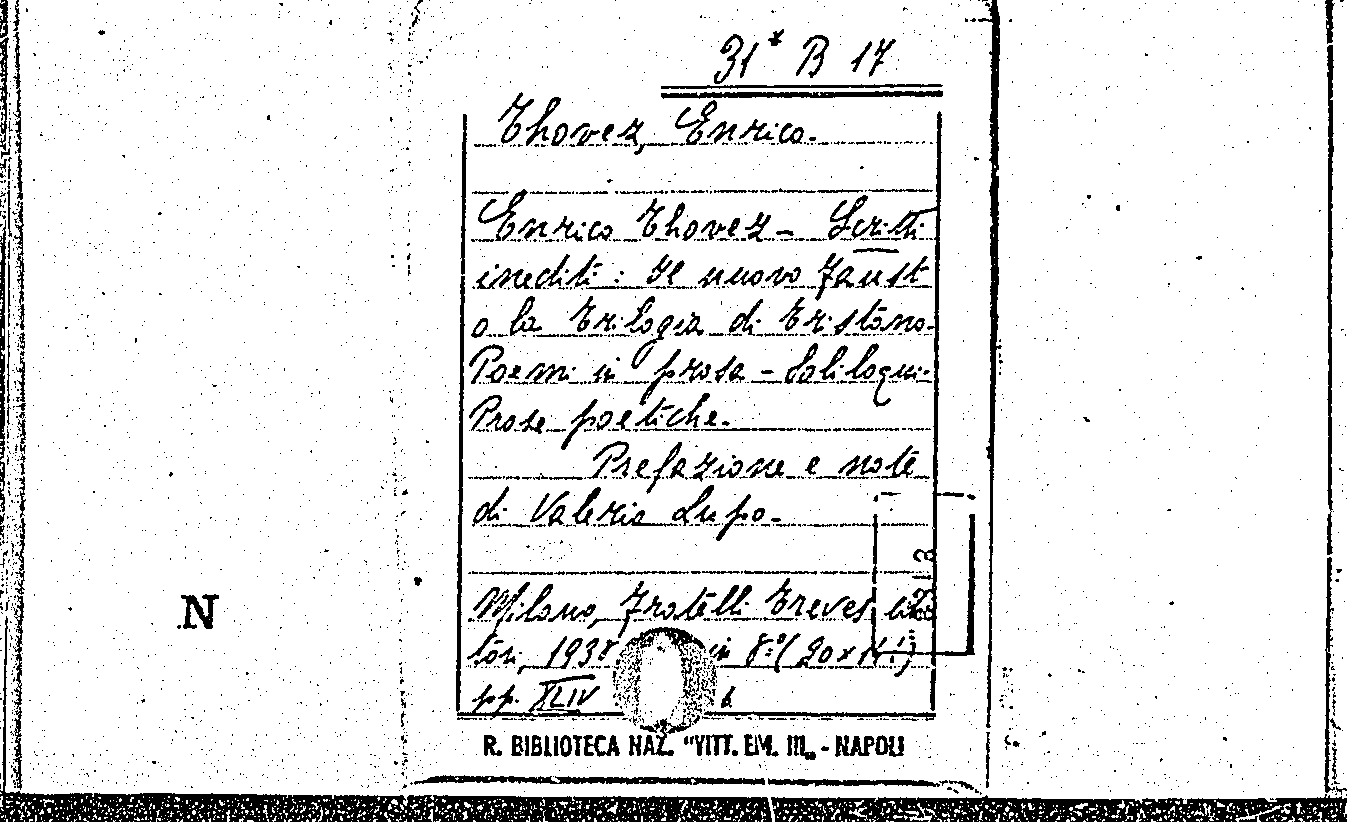 31* B 17
Thovez, Enrico.
Enrico Thovez - Scritti
inediti: Il nuovo Faust
o la Trilogia di Tristano.
Poemi in prosa - Soliloqui.
Prose poetiche.
Prefazione e note
di Valeria Lupo.
N
Milano, Fratelli Treves
tori, 1938 in 8°(20x
pp. XLIV
R. BIBLIOTECA NAZ. "VITT. EM. III„ - NAPOLI